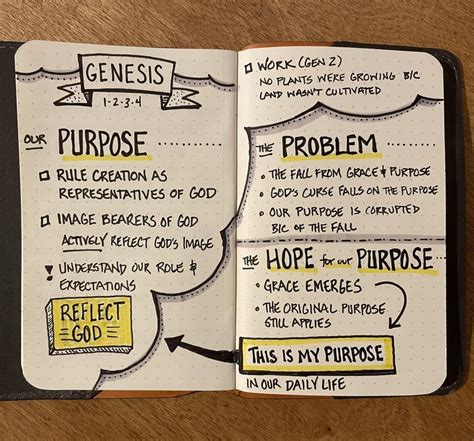 GENESIS
1-2-3-4
OUR PURPOSE
RULE CREATION AS
REPRESENTATIVES OF GOD
IMAGE BEARERS OF GOD
ACTIVELY REFLECT GOD'S IMAGE
! UNDERSTAND OUR ROLE &
EXPECTATIONS
REFLECT
GOD
WORK (GEN 2)
NO PLANTS WERE GROWING B/C
LAND WASN'T CULTIVATED
THE PROBLEM
• THE FALL FROM GRACE & PURPOSE
• GOD'S CURSE FALLS ON THE PURPOSE
• OUR PURPOSE IS CORRUPTED
B/C OF THE FALL
THE HOPE for our PURPOSE
• GRACE EMERGES
• THE ORIGINAL PURPOSE
STILL APPLIES
THIS IS MY PURPOSE
IN OUR DAILY LIFE